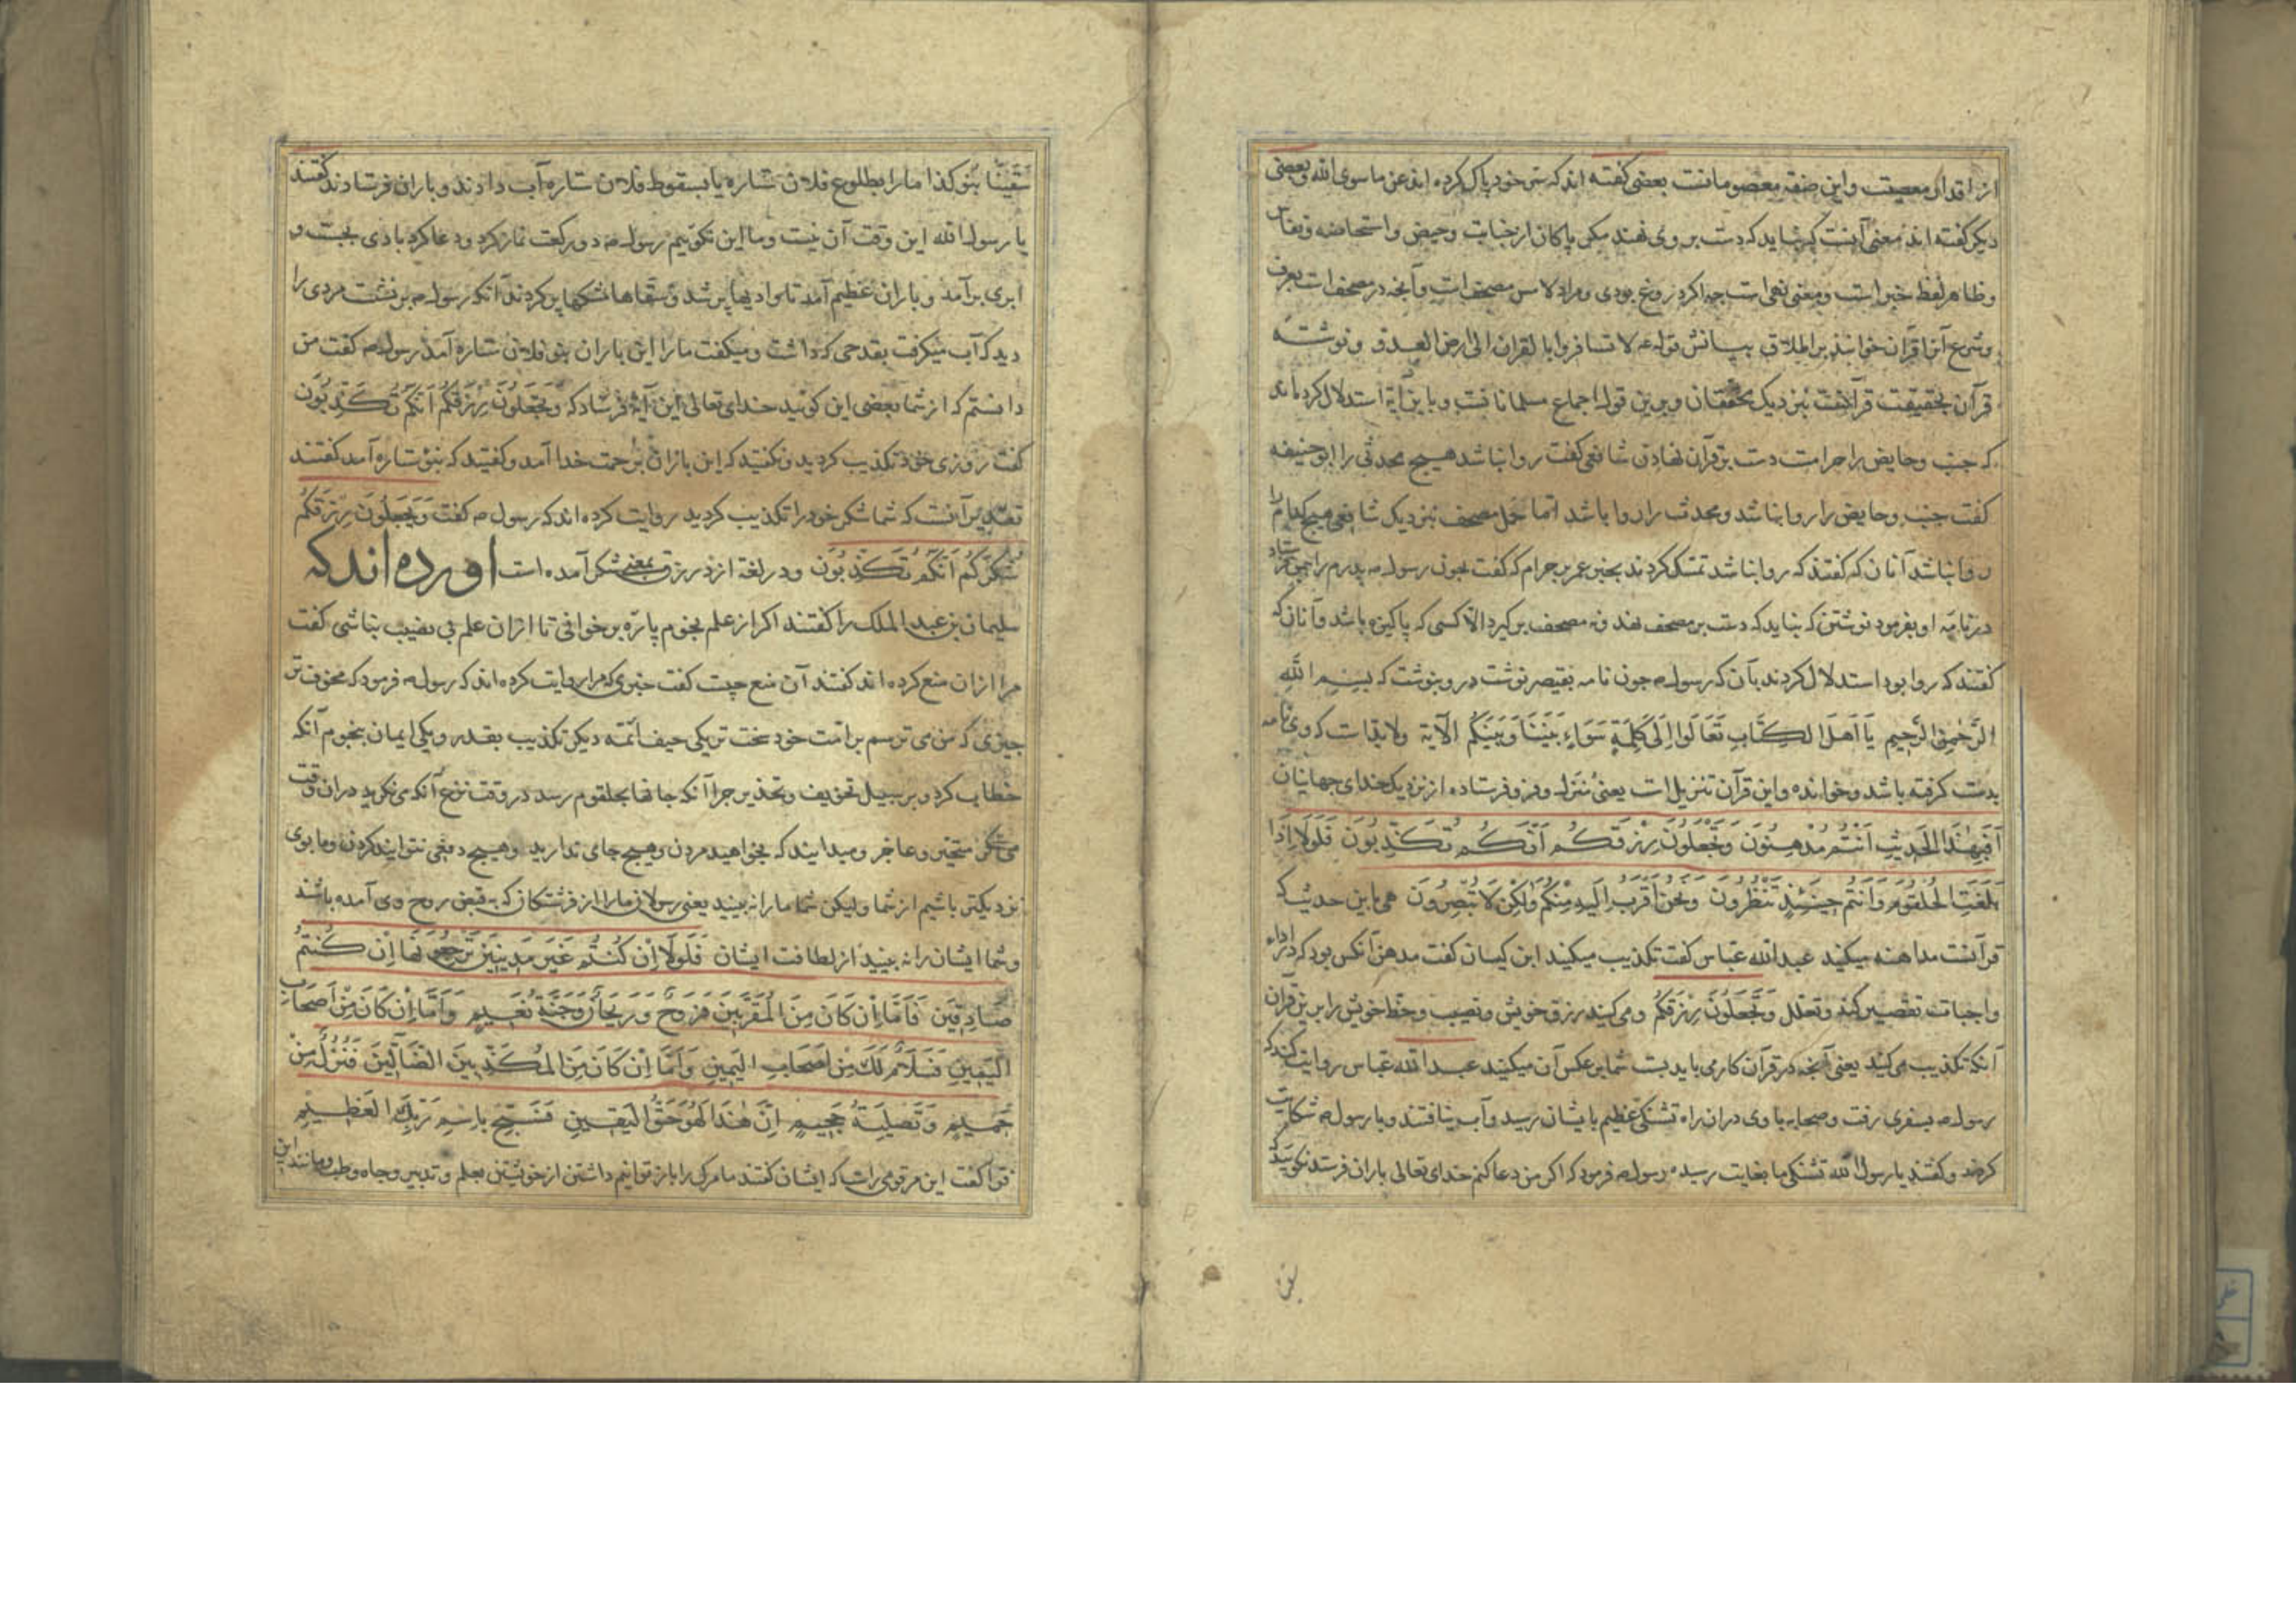 از اقدار معصیت و این صفة معصومانست بعضی کفته اند که تن خود پاک کرده اند عن ماسوی الله و بعضی
دیکر کفته اند معنی آنست که نشاید که دست بر وی نهند مکر پاکان از جنابت و حیض و استحاضه و نفاس
و ظاهر لفظ خبر است و معنی نهی است چه اکر دروغ بودی و مراد لامس مصحف است و آنچه در مصحف است بعرف
و شرع آنرا قرآن خوانند بر اطلاق بیانش قوله ع لا تسافروا بالقران الی ارض العدو و نوشته
قرآن بحقیقت قرآنست بنزدیک محققان و برین قوله اجماع مسلمانانست و باین آیة استدلال کرده اند
که جنب و حایض را حرامست دست بر قرآن نهادن شافعی کفت روا نباشد هیچ محدثی را ابوحنیفه
کفت جنب و حایض را روا نباشد و محدث را روا باشد اما حمل مصحف بنزدیک شافعی هیچ کدام را
روا نباشد آنان که کفتند که روا نباشد تمسک کردند بخبر عمر بن حرام که کفت چون رسول ص پدرم را فرستاد
در نامه او بفرمود نوشتن که نباید که دست بر مصحف نهد و نه مصحف برکیرد الا کسی که پاکیزه باشد و آنان که
کفتند که روا بود استدلال کردند بآن که رسول ص چون نامه بقیصر نوشت در و بنوشت که بسم الله
الرحمن الرحیم یا اهل الکتاب تعالوا الی کلمة سواء بیننا و بینکم الآیة ولابد است که وی نامه
بدست کرفته باشد و خوانده و این قرآن تنزیل است یعنی منزل و فرو فرستاده از نزدیک خدای جهانیان
اَفَبِهٰذَا الْحَدِیثِ اَنْتُم مُدْهِنُونَ وَتَجْعَلُونَ رِزْقَکُم اَنَّکُم تُکَذِّبُونَ فَلَولَا اِذَا
بَلَغَتِ الْحُلْقُومَ وَاَنْتُم حِینَئِذٍ تَنْظُرُونَ وَنَحْنُ اَقْرَبُ اِلَیهِ مِنْکُم وَلٰکِنْ لَا تُبْصِرُونَ هی باین حدیث که
قرآنست مداهنه میکنید عبدالله عباس کفت تکذیب میکنید ابن کیسان کفت مدهن آنکس بود که در اداء
واجبات تقصیر کند و تعلل وَتَجْعَلُونَ رِزْقَکُم و می کنید رزق خویش و نصیب و حظ خویش را برین قرآن
آنکه تکذیب می کنید یعنی آنچه در قرآن کار می باید بست شما بر عکس آن میکنید عبدالله عباس روایت کند که
رسول ص بسفری رفت و صحابه با وی در ان راه تشنکی عظیم بایشان رسید و آب نیافتند و با رسول ص شکایت
کردند و کفتند یا رسول الله تشنکی ما بغایت رسیده رسول ص فرمود که اکر من دعا کنم خدای تعالی باران فرستد نکویید که
سُقِینَا بِنَوءِ کذا ما را بطلوع فلان ستاره یا بسقوط فلان ستاره آب دادند و باران فرستادند کفتند
یا رسول الله این وقت آن نیست و ما این نکوییم رسول ص دو رکعت نماز کرد و دعا کرد بادی بجست و
ابری برآمد و باران عظیم آمد تا وادیها پر شد و سقاها مشکها پر کردند آنکه رسول ص برنشست مردی را
دید که آب میکرفت بقدحی که داشت و میکفت ما را این باران بنوء فلان ستاره آمد رسول ص کفت من
دانستم که از شما بعضی این کویند خدای تعالی این آیة فرستاد که وَتَجْعَلُونَ رِزْقَکُم اَنَّکُم تُکَذِّبُونَ
کفت روزی خود تکذیب کردید و نکفتید که این باران برحمت خدا آمد و کفتید که بنوء ستاره آمد کفتند
تقدیر آنست که شما شکر خود را تکذیب کردید روایت کرده اند که رسول ص کفت وَتَجْعَلُونَ رِزْقَکُم
شُکْرَکُم اَنَّکُم تُکَذِّبُونَ و در لغة ازد رزق بمعنی شکر آمده است اورده اند که
سلیمان بن عبد الملک را کفتند اکر از علم نجوم پاره برخوانی تا از ان علم بی نصیب نباشی کفت
مرا از ان منع کرده اند کفتند آن منع چیست کفت خبری که مرا روایت کرده اند که رسول ص فرمود که مخوف تر
چیزی که من می ترسم بر امت خود سخت تر یکی حیف ائمه دیکر تکذیب بقدر و یکی ایمان بنجوم آنکه
خطاب کرد و بر سبیل تخویف و تحذیر چرا آنکه جانها بحلقوم رسد در وقت نزع آنکه می نکرید در ان وقت
می نکرید متحیر و عاجز و میدانید که بخواهید مردن و هیچ جای ندارید و هیچ دفعی نتوانید کردن و ما بوی
نزدیکتر باشیم از شما ولیکن شما ما را نه بینید یعنی رسولان ما را از فرشتکان که بقبض روح وی آمده باشند
و شما ایشان را نه بینید از لطافت ایشان فَلَولَا اِنْ کُنْتُم غَیرَ مَدِینِینَ تَرْجِعُونَهَا اِنْ کُنْتُم
صَادِقِینَ فَاَمَّا اِنْ کَانَ مِنَ الْمُقَرَّبِینَ فَرَوْحٌ وَرَیحَانٌ وَجَنَّةُ نَعِیمٍ وَاَمَّا اِنْ کَانَ مِنْ اَصْحَابِ
الْیَمِینِ فَسَلَامٌ لَکَ مِنْ اَصْحَابِ الْیَمِینِ وَاَمَّا اِنْ کَانَ مِنَ الْمُکَذِّبِینَ الضَّالِّینَ فَنُزُلٌ مِنْ
حَمِیمٍ وَتَصْلِیَةُ جَحِیمٍ اِنَّ هٰذَا لَهُوَ حَقُّ الْیَقِینِ فَسَبِّحْ بِاسْمِ رَبِّکَ الْعَظِیمِ
فرا کفت این مر قومی راست که ایشان کفتند ما مرک را باز توانیم داشتن از خویشتن بعلم و تدبیر و جاه و طب و مانند این